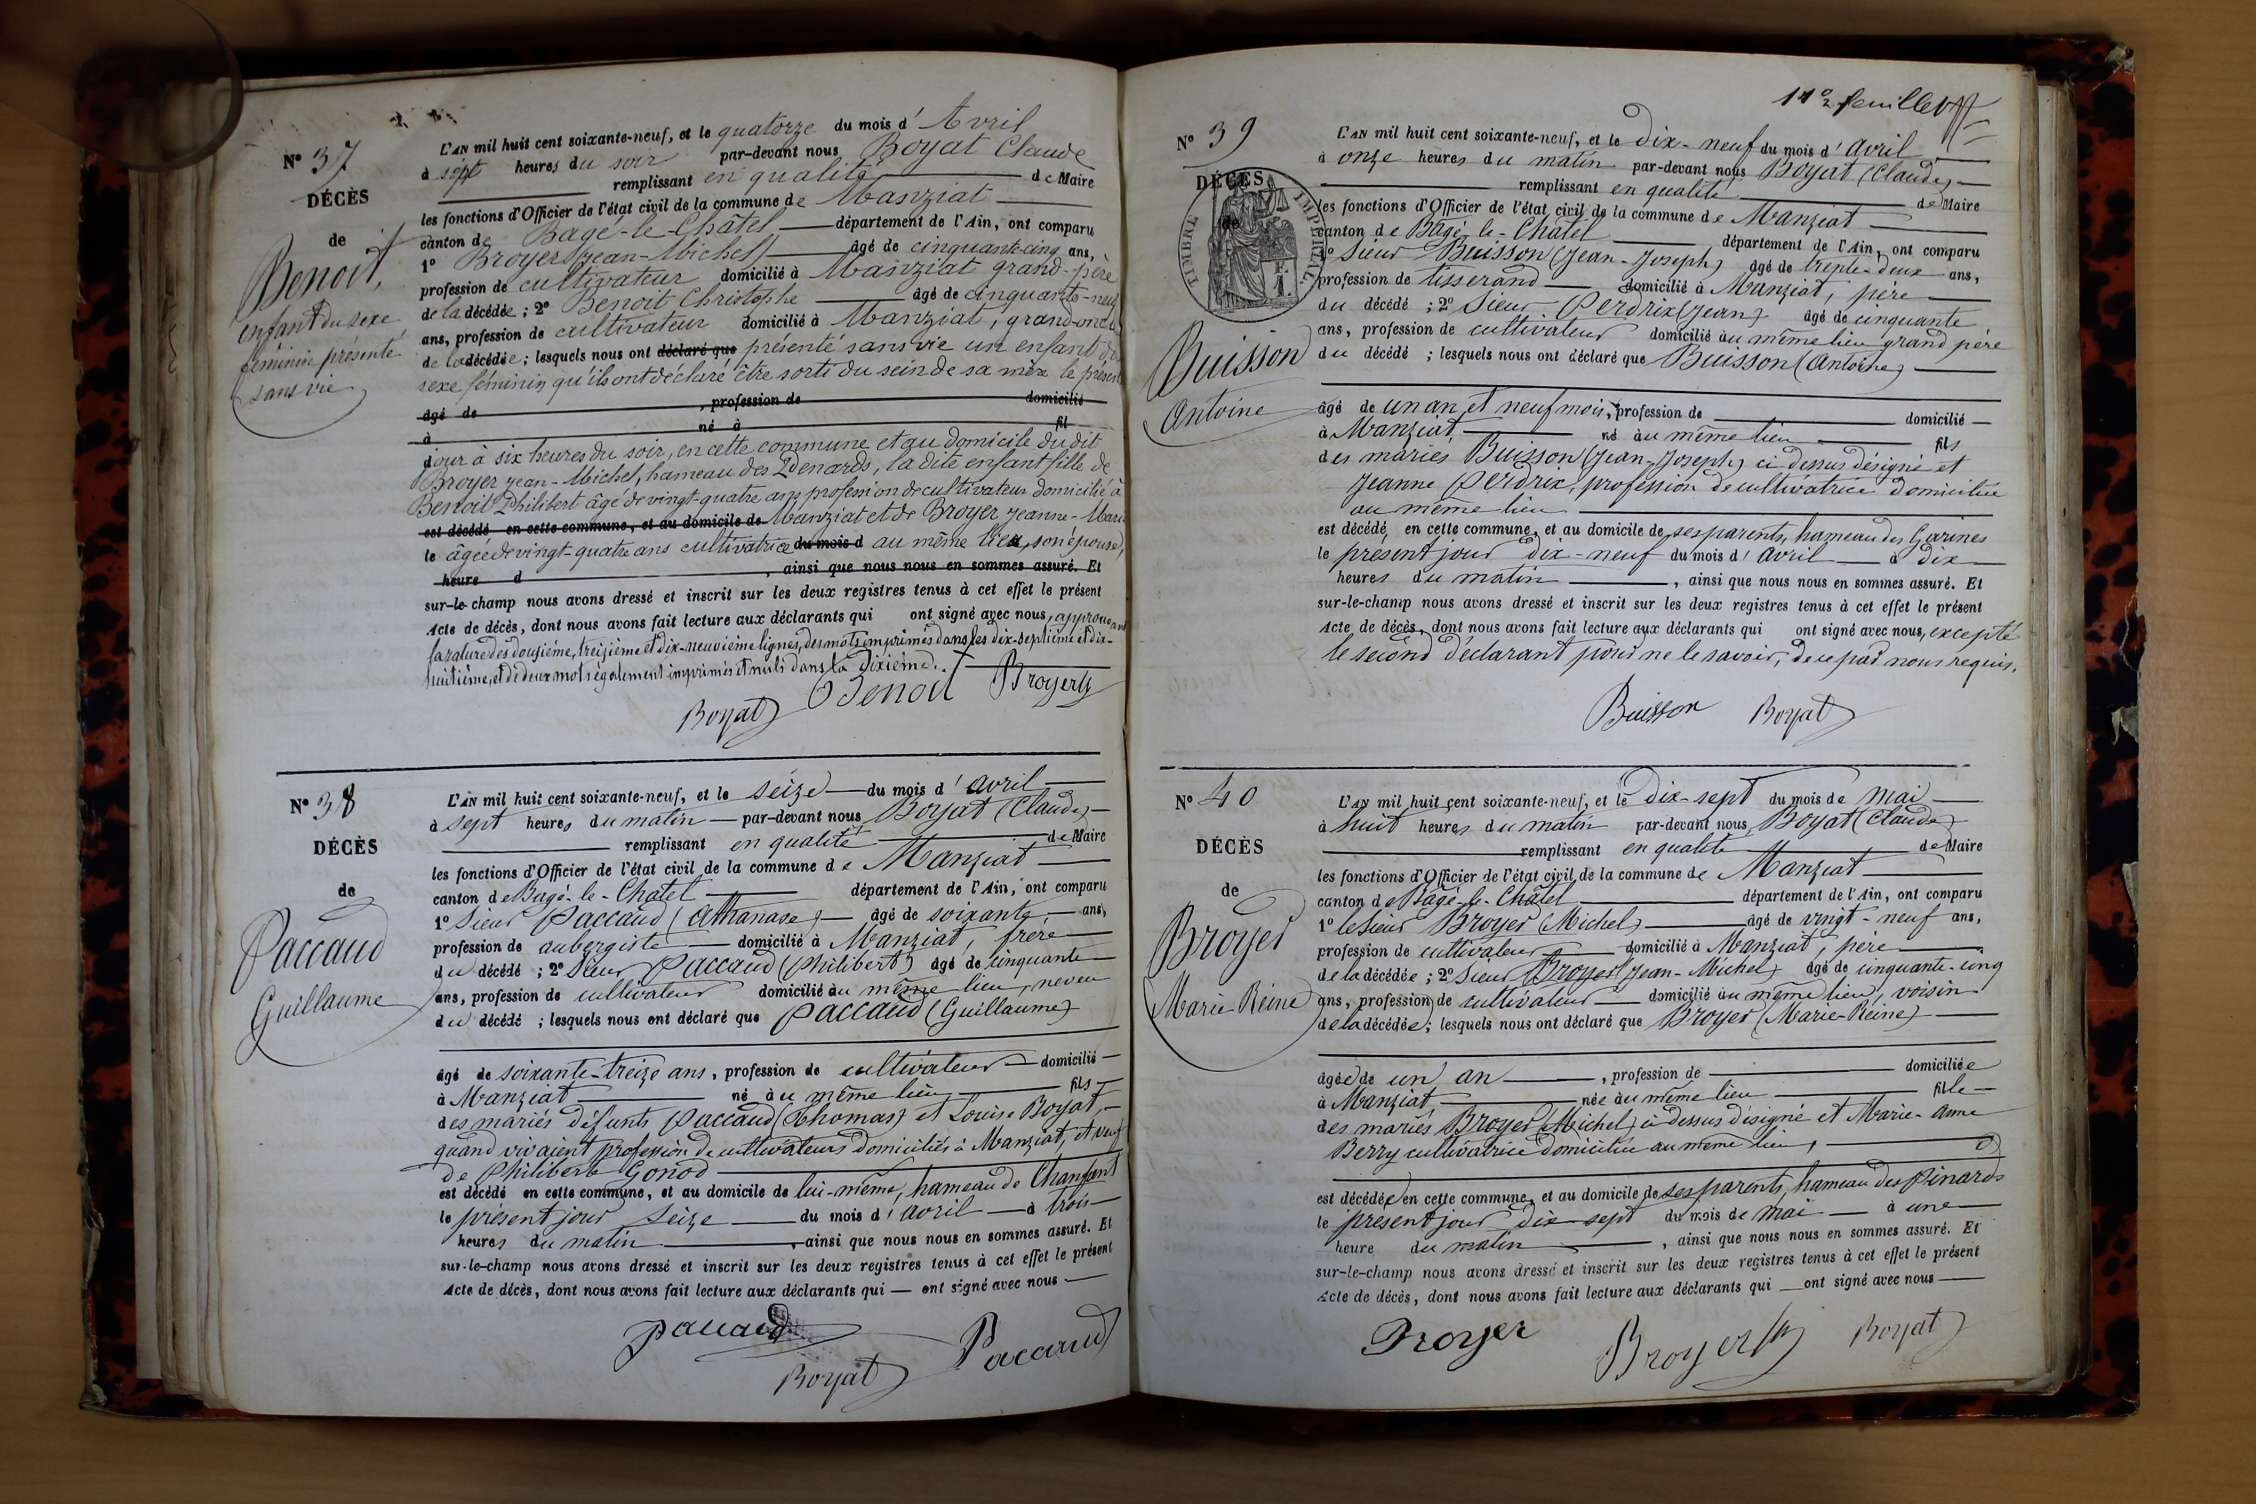 N° 37
DÉCÈS
de
Benoit,
enfant du sexe
féminin présenté
sans vie
L'AN mil huit cent soixante-neuf, et le quatorze du mois d' Avril
à sept heures du soir par-devant nous Boyat Claude
remplissant en qualité de Maire
les fonctions d'Officier de l'état civil de la commune de Manziat
canton de Bagé-le-Châtel département de l'Ain, ont comparu
1° Broyer (Jean-Michel) âgé de cinquante-cinq ans,
profession de cultivateur domicilié à Manziat grand-père
de la décédée ; 2° Benoit Christophe âgé de cinquante-neuf
ans, profession de cultivateur domicilié à Manziat, grand-oncle
de la décédée ; lesquels nous ont déclaré que présenté sans vie un enfant du
sexe féminin qu'ils ont déclaré être sorti du sein de sa mère le présent
âgé de , profession de domicilié
à né à fil
jour à six heures du soir, en cette commune et au domicile du dit
Broyer Jean-Michel, hameau des Pdenards, la dite enfant fille de
Benoit Philibert âgé de vingt-quatre ans profession de cultivateur domicilié à
est décédé en cette commune, et au domicile de Manziat et de Broyer Jeanne-Marie
le âgée de vingt-quatre ans cultivatrice du mois d au même lieu, son épouse,
heure d , ainsi que nous nous en sommes assuré. Et
sur-le-champ nous avons dressé et inscrit sur les deux registres tenus à cet effet le présent
Acte de décès, dont nous avons fait lecture aux déclarants qui ont signé avec nous, approuvant
la rature des douzième, treizième et dix-neuvième lignes, des mots imprimés dans les dix-septième et dix-
huitième, et de deux mots également imprimés et nuls dans la dixième.
Boyat Benoit Broyer
N° 38
DÉCÈS
de
Paccaud
Guillaume
L'AN mil huit cent soixante-neuf, et le seize du mois d' avril
à sept heures du matin par-devant nous Boyat (Claude)
remplissant en qualité de Maire
les fonctions d'Officier de l'état civil de la commune de Manziat
canton de Bagé-le-Chatel département de l'Ain, ont comparu
1° Sieur Paccaud (Athanase) âgé de soixante ans,
profession de aubergiste domicilié à Manziat, frère
du décédé ; 2° Sieur Paccaud (Philibert) âgé de cinquante
ans, profession de cultivateur domicilié au même lieu, neveu
du décédé ; lesquels nous ont déclaré que Paccaud (Guillaume)
âgé de soixante-treize ans, profession de cultivateur domicilié
à Manziat né au même lieu fils
des mariés défunts Paccaud (Thomas) et Louise Boyat,
quand vivaient profession de cultivateurs domiciliés à Manziat, et veuf
de Philiberte Gonod
est décédé en cette commune, et au domicile de lui-même, hameau de Chanfant
le présent jour seize du mois d' avril à trois
heures du matin , ainsi que nous nous en sommes assuré. Et
sur-le-champ nous avons dressé et inscrit sur les deux registres tenus à cet effet le présent
Acte de décès, dont nous avons fait lecture aux déclarants qui ont signé avec nous
Paccaud
Boyat Paccaud
11e feuillet
N° 39
DÉCÈS
de
TIMBRE IMPÉRIAL
Buisson
Antoine
L'AN mil huit cent soixante-neuf, et le dix-neuf du mois d' avril
à onze heures du matin par-devant nous Boyat (Claude)
remplissant en qualité de Maire
les fonctions d'Officier de l'état civil de la commune de Manziat
canton de Bâgé-le-Châtel département de l'Ain, ont comparu
1° Sieur Buisson (Jean-Joseph) âgé de trente-deux ans,
profession de tisserand domicilié à Manziat, père
du décédé ; 2° Sieur Perdrix (Jean) âgé de cinquante
ans, profession de cultivateur domicilié au même lieu grand père
du décédé ; lesquels nous ont déclaré que Buisson (Antoine)
âgé de un an et neuf mois, profession de domicilié
à Manziat, né au même lieu fils
des mariés Buisson (Jean-Joseph) ci dessus désigné et
Jeanne Perdrix, profession de cultivatrice domiciliée
au même lieu
est décédé, en cette commune, et au domicile de ses parents, hameau des Gorines
le présent jour dix-neuf du mois d' avril à dix
heures du matin , ainsi que nous nous en sommes assuré. Et
sur-le-champ nous avons dressé et inscrit sur les deux registres tenus à cet effet le présent
Acte de décès, dont nous avons fait lecture aux déclarants qui ont signé avec nous, excepté
le second déclarant pour ne le savoir, de ce par nous requis.
Buisson Boyat
N° 40
DÉCÈS
de
Broyer
Marie Reine
L'AN mil huit cent soixante-neuf, et le dix-sept du mois de mai
à huit heures du matin par-devant nous Boyat (Claude)
remplissant en qualité de Maire
les fonctions d'Officier de l'état civil de la commune de Manziat
canton de Bâgé-le-Châtel département de l'Ain, ont comparu
1° le Sieur Broyer (Michel) âgé de vingt-neuf ans,
profession de cultivateur domicilié à Manziat, père
de la décédée ; 2° Sieur Broyer (Jean-Michel) âgé de cinquante-cinq
ans, profession de cultivateur domicilié au même lieu, voisin
de la décédée ; lesquels nous ont déclaré que Broyer (Marie-Reine)
âgée de un an , profession de domiciliée
à Manziat née au même lieu fille
des mariés Broyer (Michel) ci dessus désigné et Marie-Anne
Berry cultivatrice domiciliée au même lieu,
est décédée en cette commune, et au domicile de ses parents, hameau des Pinards
le présent jour dix-sept du mois de mai à une
heure du matin , ainsi que nous nous en sommes assuré. Et
sur-le-champ nous avons dressé et inscrit sur les deux registres tenus à cet effet le présent
Acte de décès, dont nous avons fait lecture aux déclarants qui ont signé avec nous
Broyer Broyer Boyat